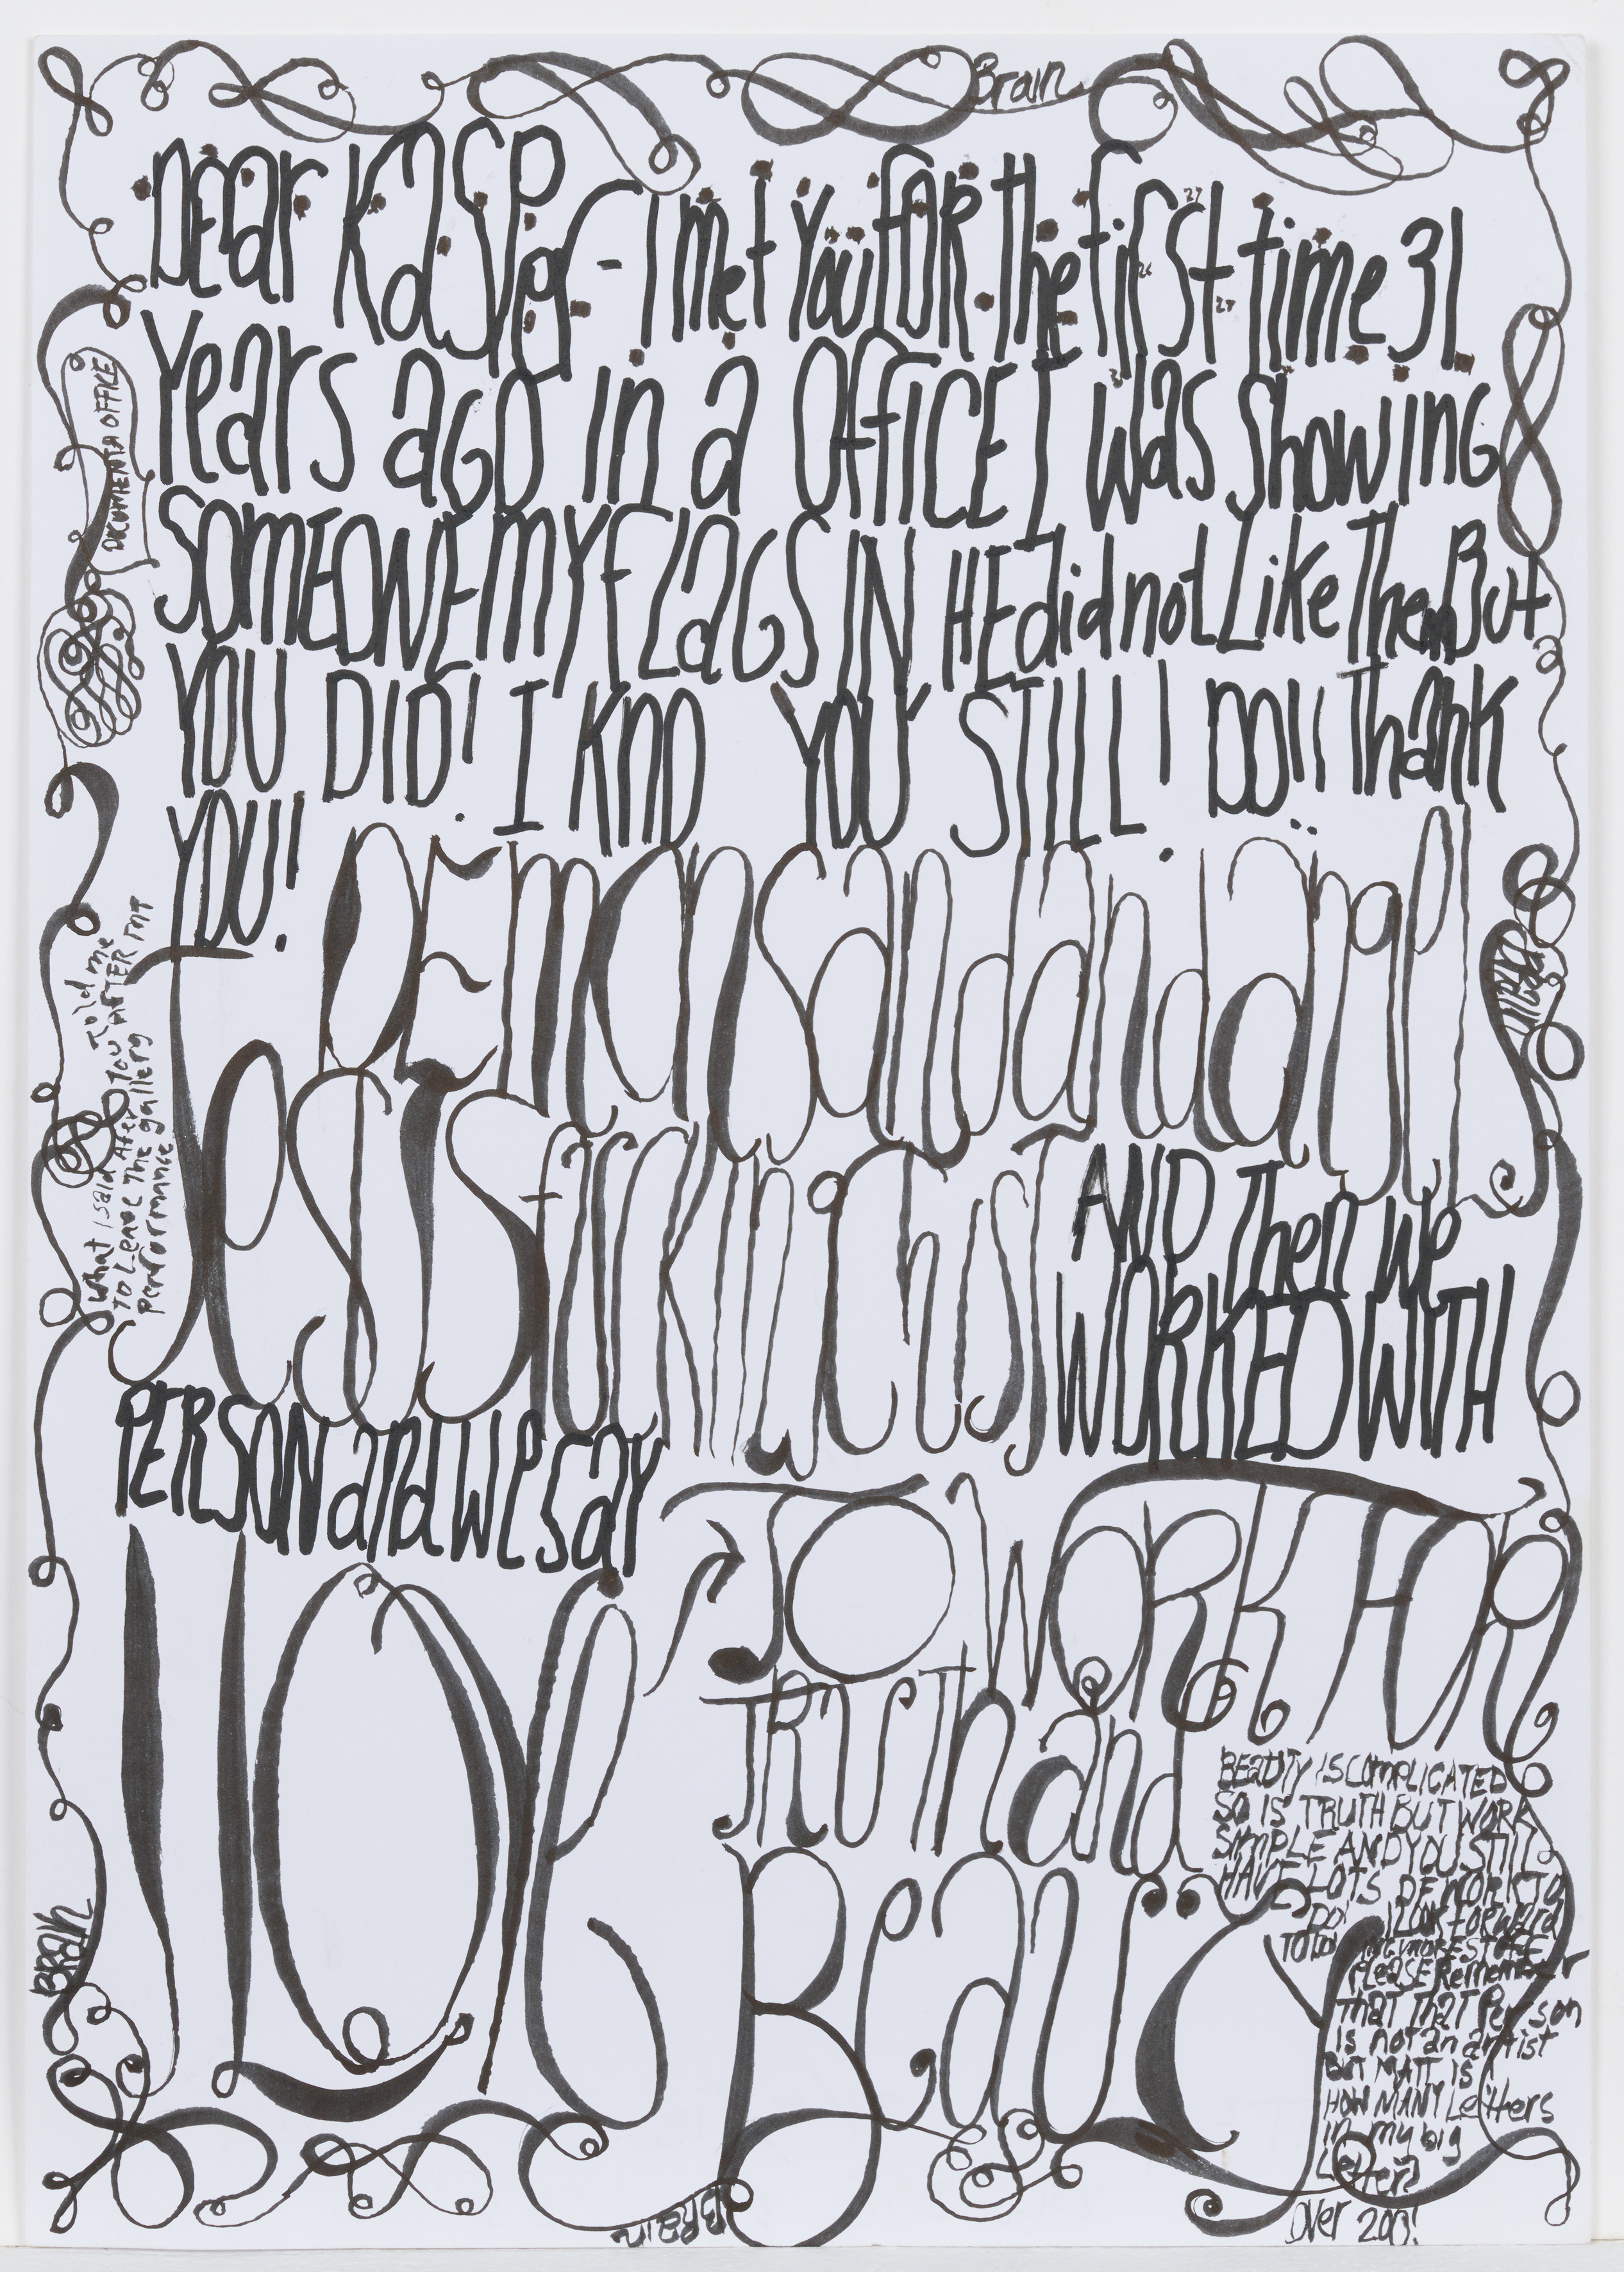 Brain
DEar KaSPer - I met You foR The first time 31
Years aGO in a OffICE I was Showing
SOMEONE MY FLaGS IN HE did not Like Them But
YOU DID! I KNO YOU STILL! DO!! Thank
YOU!!
DEmons and and angels
JeSuS fuckin Chist AND Then We
WORKED WITH
PERSON and we say
I LOVE TO WORK FOR
TRUTH and
BeauTy
BEauTY IS COMPLICATED
SO IS TRUTH BUT WORK
SIMPLE AND YOU STILL
HAVE LOTS OF WORK TO
DO! I LOOK forward
TO DO MORE STUFF
PLEASE Remember
That That Person
is not an artist
BUT MATT IS!
HOW MANY Letters
in my big
Letter?
over 200!
DOCUMENTA OFFICE
What I said After You Told me
TO LEAVE The gallery AFTER MY
performance
BRain
BRain
BRain